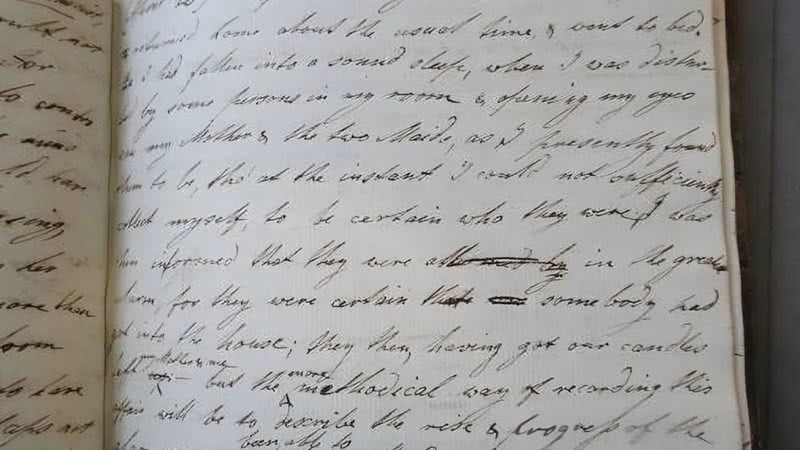 returned home about the usual time, & went to bed.
I had fallen into a sound sleep, when I was distur-
by some persons in my room & opening my eyes
my Mother & the two Maids, as I presently found
them to be, tho' at the instant I could not sufficiently
collect myself, to be certain who they were, I was
then informed that they were all in the great
alarm, for they were certain that somebody had
got into the house; they then, having got our candles
left my Mother & me
but the more methodical way of recording this
affair will be to describe the rise & progress of the
been able to
for
to contr
had have
sing,
her
more than
room
to have